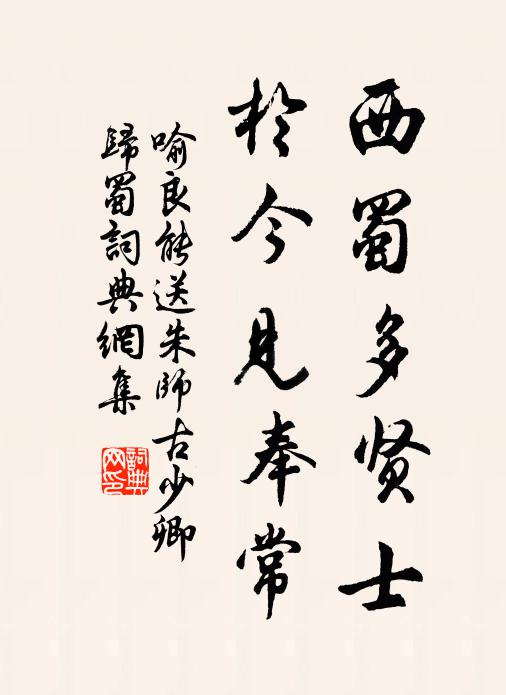 西蜀多贤士
於今見奉常
喻良能送朱師古少卿
歸蜀詞典網集
詞典网印